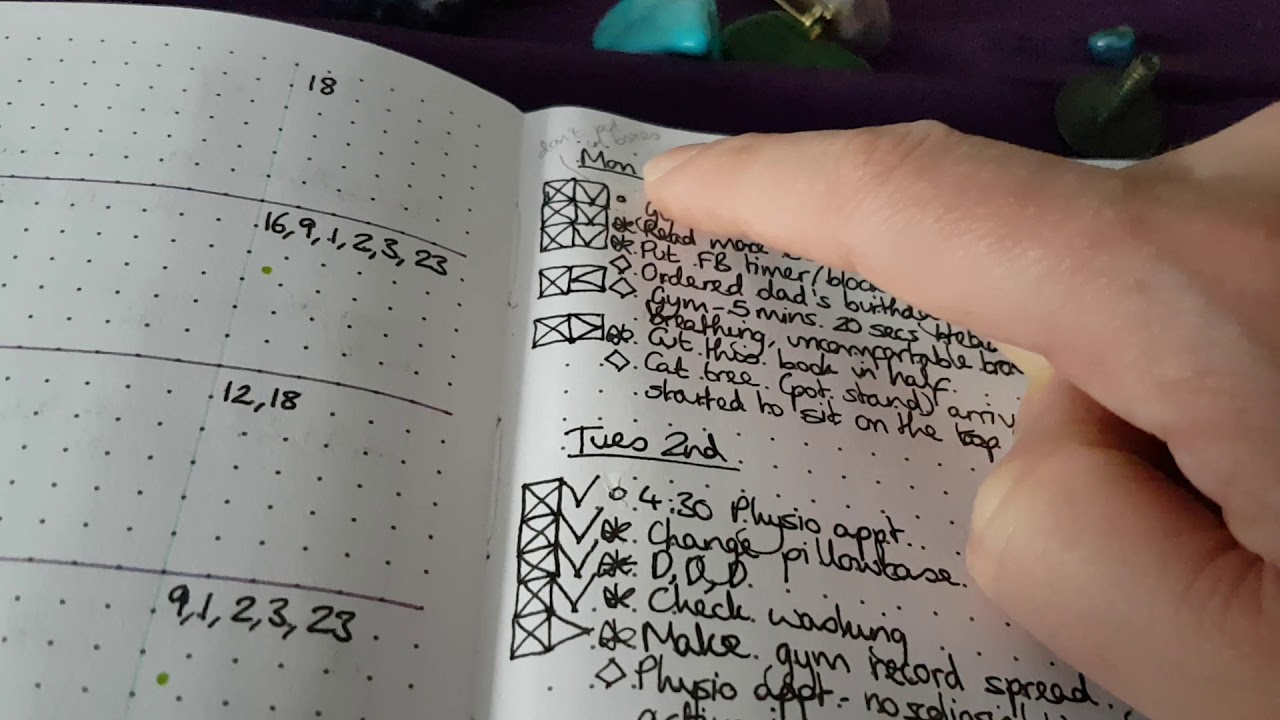 18
16, 9, 1, 2, 3, 23
12, 18
9, 1, 2, 3, 23
don't put
in boxes
Mon
Read
Put FB timer/
Ordered dad's
Gym - 5 mins. 20 secs
breathing, uncomfortable
Cut this book in half.
Cat tree (pot stand)
started to sit on the top
Tues 2nd
4:30 Physio appt.
Change pillowcase.
D, D, D.
Check washing
Make gym record spread.
Physio appt - no